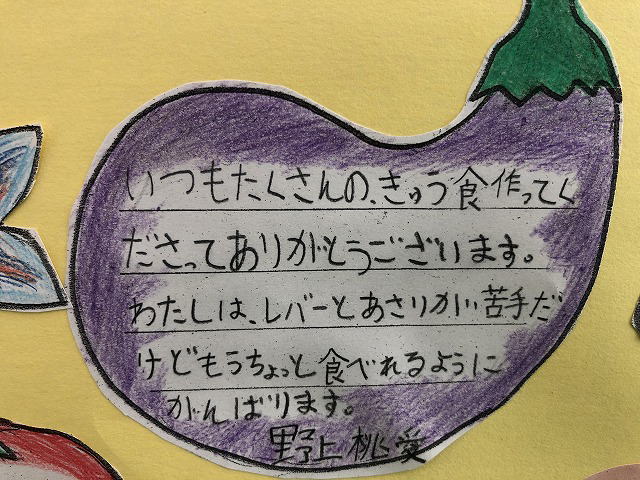 いつもたくさんの、きゅう食作ってく
ださってありがとうございます。
わたしは、レバーとあさりがい苦手だ
けどもうちょっと食べれるように
がんばります。
野上桃愛